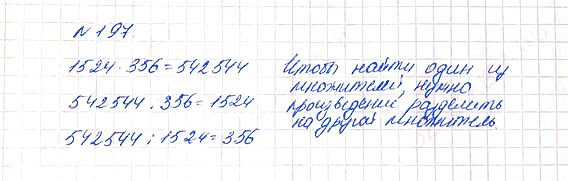 № 197.
1524 · 356 = 542544
542544 : 356 = 1524
542544 : 1524 = 356
Чтобы найти один из
множителей, нужно
произведение разделить
на другой множитель.